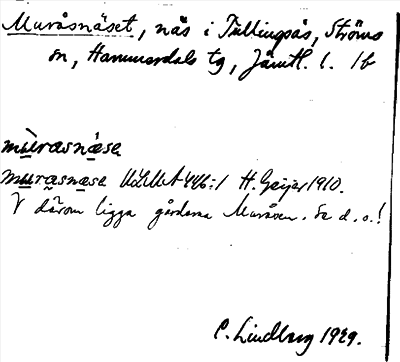 Muråsnäset, näs i Tullingsås, Ströms
sn, Hammerdals tg, Jämtl. l. 1b
mùrasnäse
murasnæse ULMA 446:1 H. Geijer 1910.
V därom ligga gårdarna Muråsen. Se d. o.!
C. Lindberg 1929.